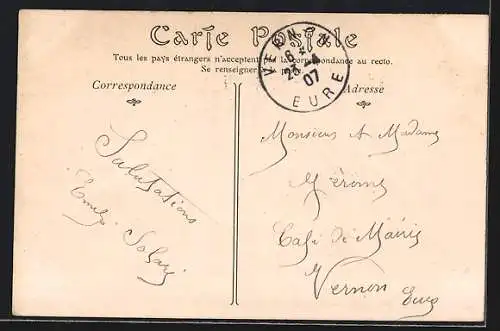 Carte Postale
Tous les pays étrangers n'acceptent pas la correspondance au recto.
Se renseigner à la poste.
Correspondance
Adresse
VERNON
6
23-4
07
EURE
Salutations
Emile Solari
Monsieur et Madame
Café de
Vernon
Eure